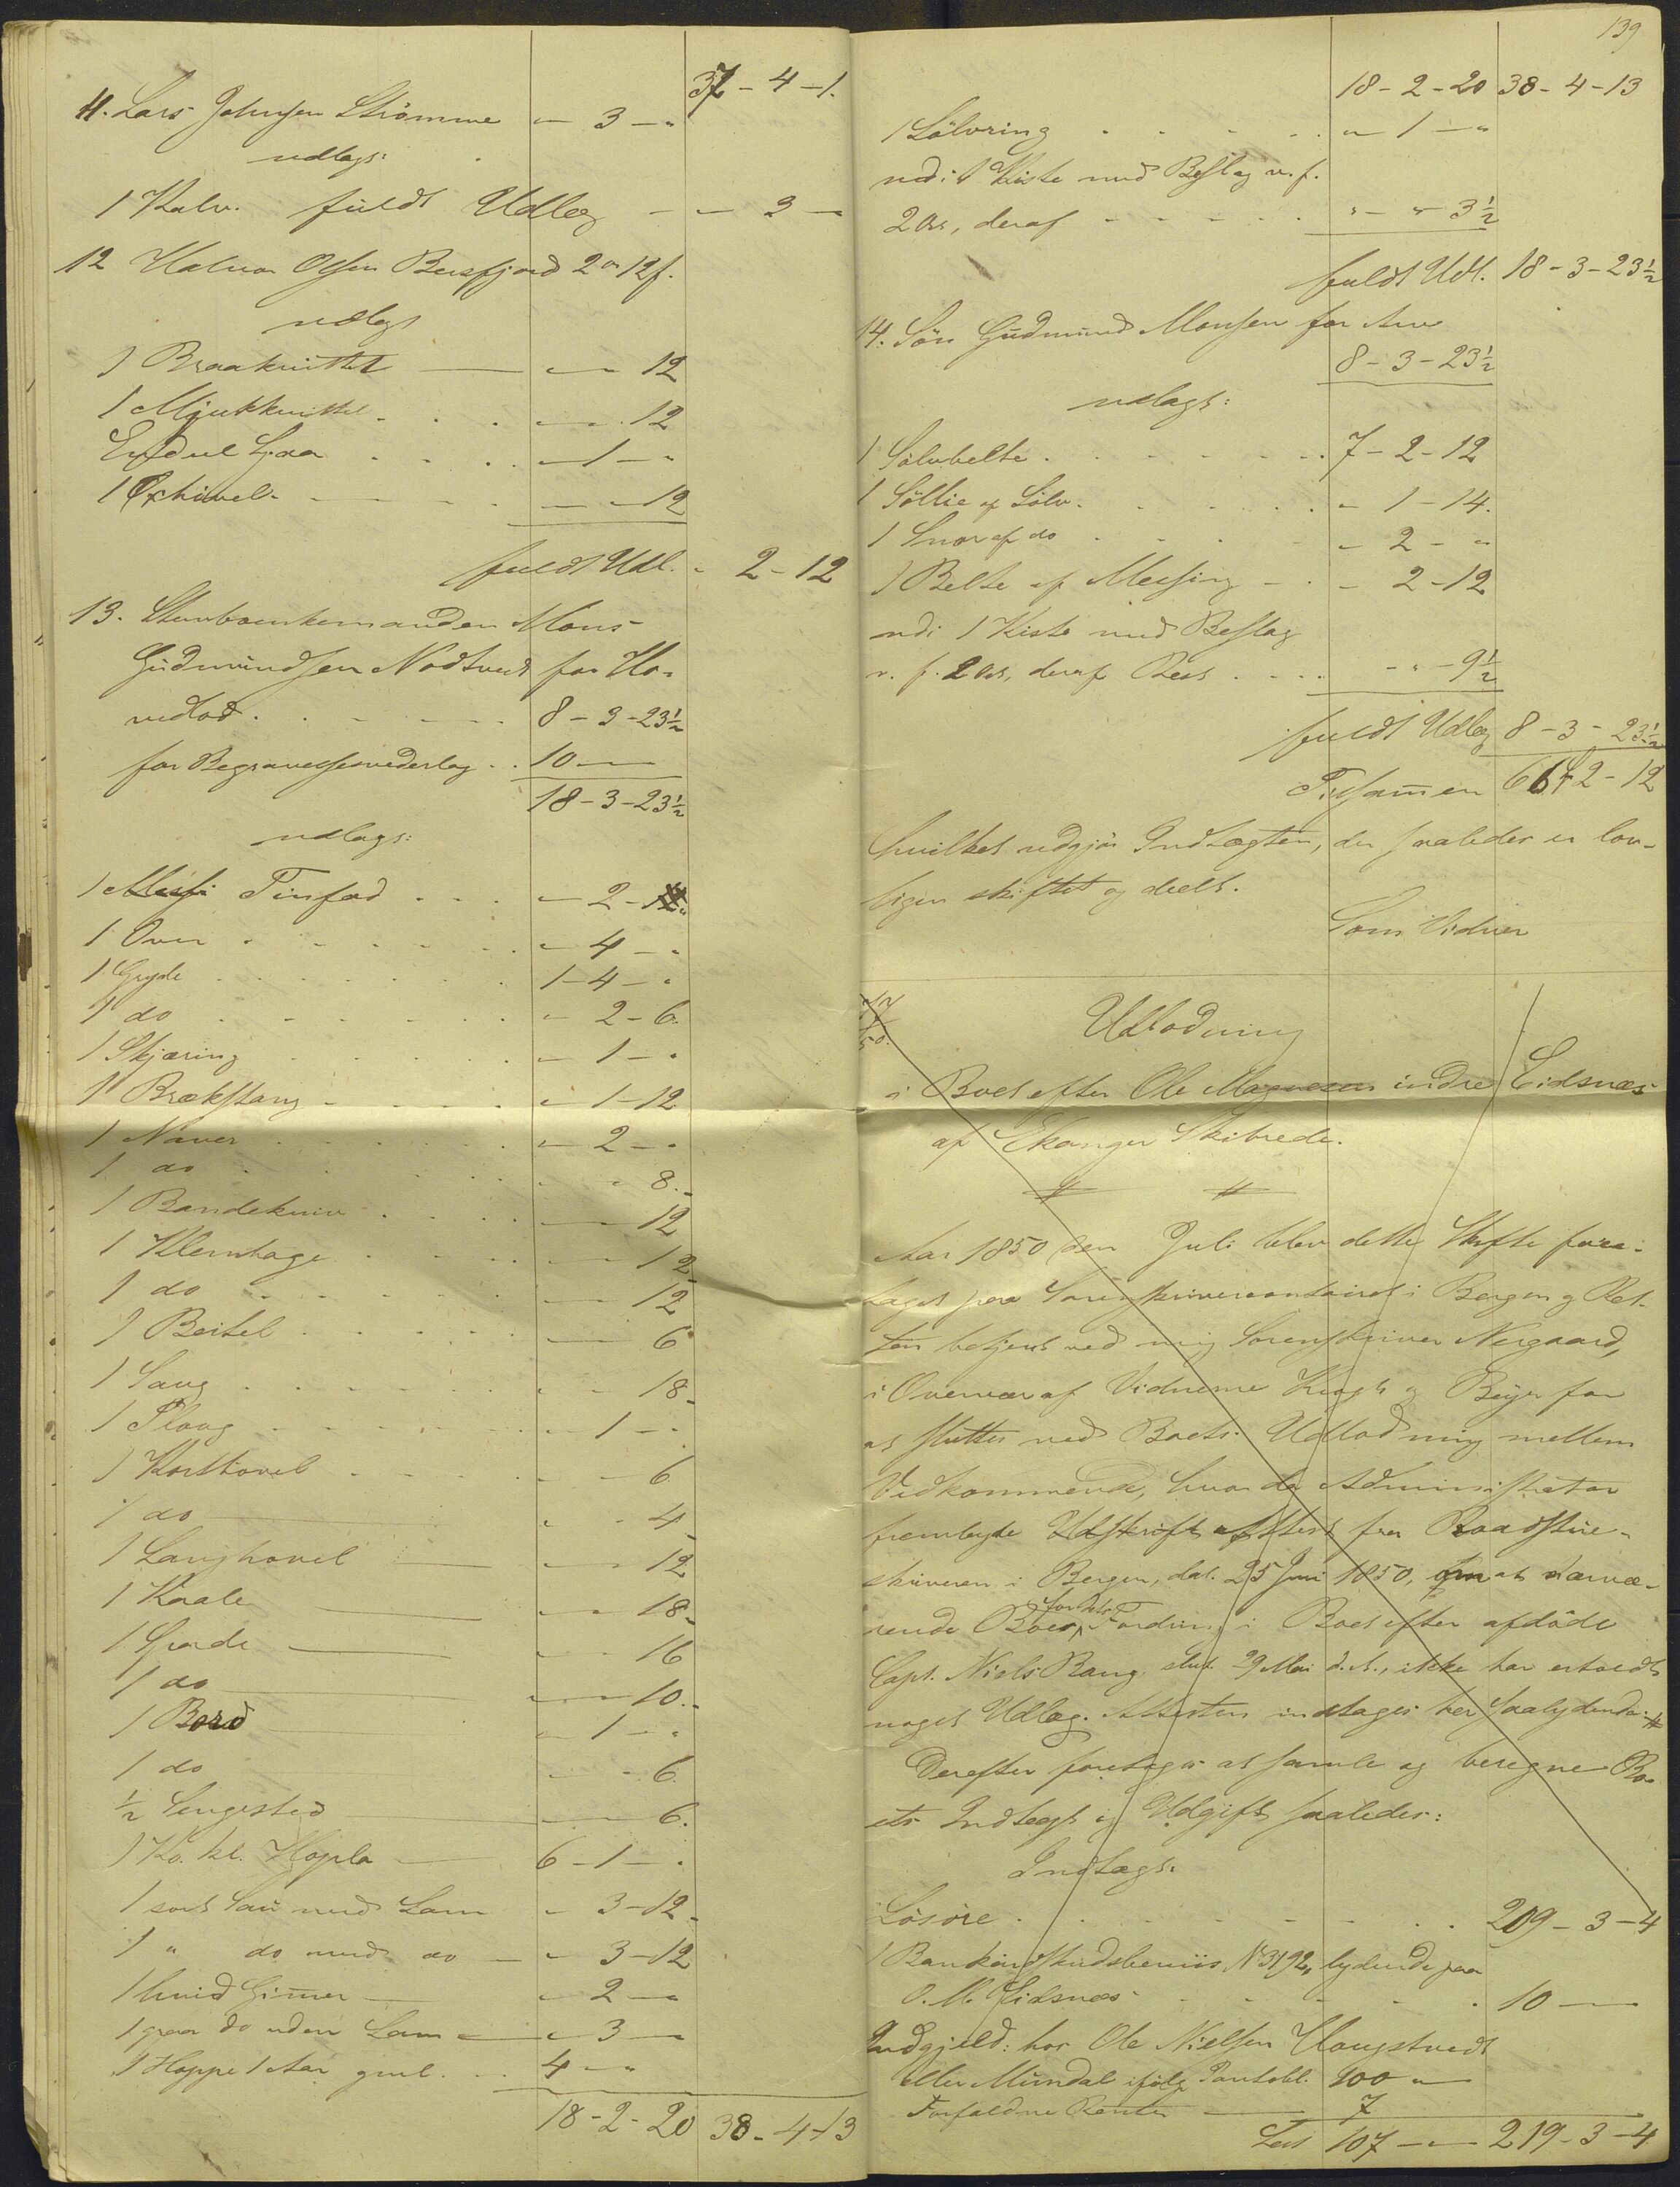 37 - 4 - 1.
11. Lars Johnsen Strømme " - 3 - "
udlagt:
1 Kalv. fuldt Udlæg - - 3 -
12 Halvor Olsen Beisfjord 2 " 12 f.
udlagt
1 Braaknittel — " - " 12
1 Mjukknittel . . . " - " 12
En deel Ljaa . . . . " - 1 - "
1 Oxhövel . . . . " - " 12
fuldt Udl. " 2 - 12
13. Stervboenkemanden Mons
Gudmundsen Nodtvedt for Ho-
vedlod . . . . . 8 - 3 - 23½
for Begravelsesvederlag . . 10 —
18 - 3 - 23½
udlagt:
1 Tinfad . . . " - 2 - "
1 Oven . . . . . . " - 4 - "
1 Gryde . . . . . . 1 - 4 - "
1 do . . . . . . " - 2 - 6.
1 Skjæring . . . . . " - 1 - "
1 Brækstang . . . . . " - 1 - 12
1 Naver . . . . . . " - 2 - "
1 do . . . . . . " - " 8.
1 Bandekniv . . . . " - " 12
1 Klemhage . . . . " - " 12
1 do . . . . . . " - " 12
1 Beitel . . . . . " - " 6
1 Saug . . . . . . " - " 18
1 Ploug . . . . . . " - 1 - "
1 Korthövel . . . . " - " 6
1 do — " - " 4
1 Langhövel — " - " 12
1 Kaale — " - " 18
1 Spade — " - " 16
1 do — " - " 10.
1 Bord — " - 1 - "
1 do — " - " 6.
½ Sengested — " - " 6.
1 Ko. kl. Hopla — 6 - 1 - "
1 sort Sau med Lam " - 3 - 12
1 " do med do — " - 3 - 12
1 hvid Gimmer — " - 2 - "
1 graa do uden Lam — " - 3 - "
1 Hoppe 1 Aar gml. . . 4 - "
18 - 2 - 20 38 - 4 - 13
139
18 - 2 - 20 38 - 4 - 13
1 Sölvring . . . . . " - 1 - "
udi 1 Kiste med Beslag v. f.
2 Ort, deraf . . . . . " - " 3½
fuldt Udl. 18 - 3 - 23½
14. Sön Gudmund Monsen for Arv
8 - 3 - 23½
udlagt:
1 Sölvbelte . . . . . . . 7 - 2 - 12
1 Söllie af Sölv . . . . . " 1 - 14.
1 Snor af do . . . . . " 2 - "
1 Belte af Messing . . . " 2 - 12
udi 1 Kiste med Beslag
v. f. 2 Ort, deraf Rest . . . . " - " - 9½
fuldt Udlæg 8 - 3 - 23½
Tilsammen 66 - 2 - 12
hvilket udgjör Indtægten, der saaledes er lov-
ligen skiftet og deelt.
Som Vidner
Udlodning
i Boet efter Ole Magnesen indre Eidsnæs
af Ekanger Skibrede.
Aar 1850 den Juli blev dette Skifte fore-
taget paa Sorenskrivercontoiret i Bergen og Ret-
ten betjent ved mig Sorenskriver Nergaard,
i Overvær af Vidnerne Krogh og Beyer for
at slutte ved Boets Udlodning mellem
Vedkommende, hvor da Administrator
fremlagde Udskrift Attest fra Raadstue-
skriveren i Bergen, dat. 25 Juni 1850, om at nærvæ-
rende Boes, for dets Fordring i Boet efter afdöde
Capt. Niels Bang, slut. 29 Mai d. A., ikke har erholdt
noget Udlæg. Attesten indtages her saalydende: #
Derefter foretoges at samle og beregne Bo-
ets Indtægt og Udgift saaledes:
Indtægt:
Lösöre . . . . . . . . 209 - 3 - 4
1 Bankindskudsbeviis No 3192, lydende paa
O. M. Eidsnæs . . . . . . 10 —
Indgjeld: hos Ole Nielsen Haugstvedt
eller Mundal ifölge Pantobl. 100 " —
Forfaldne Renter — 7
Lat. 107 — " — 219 - 3 - 4